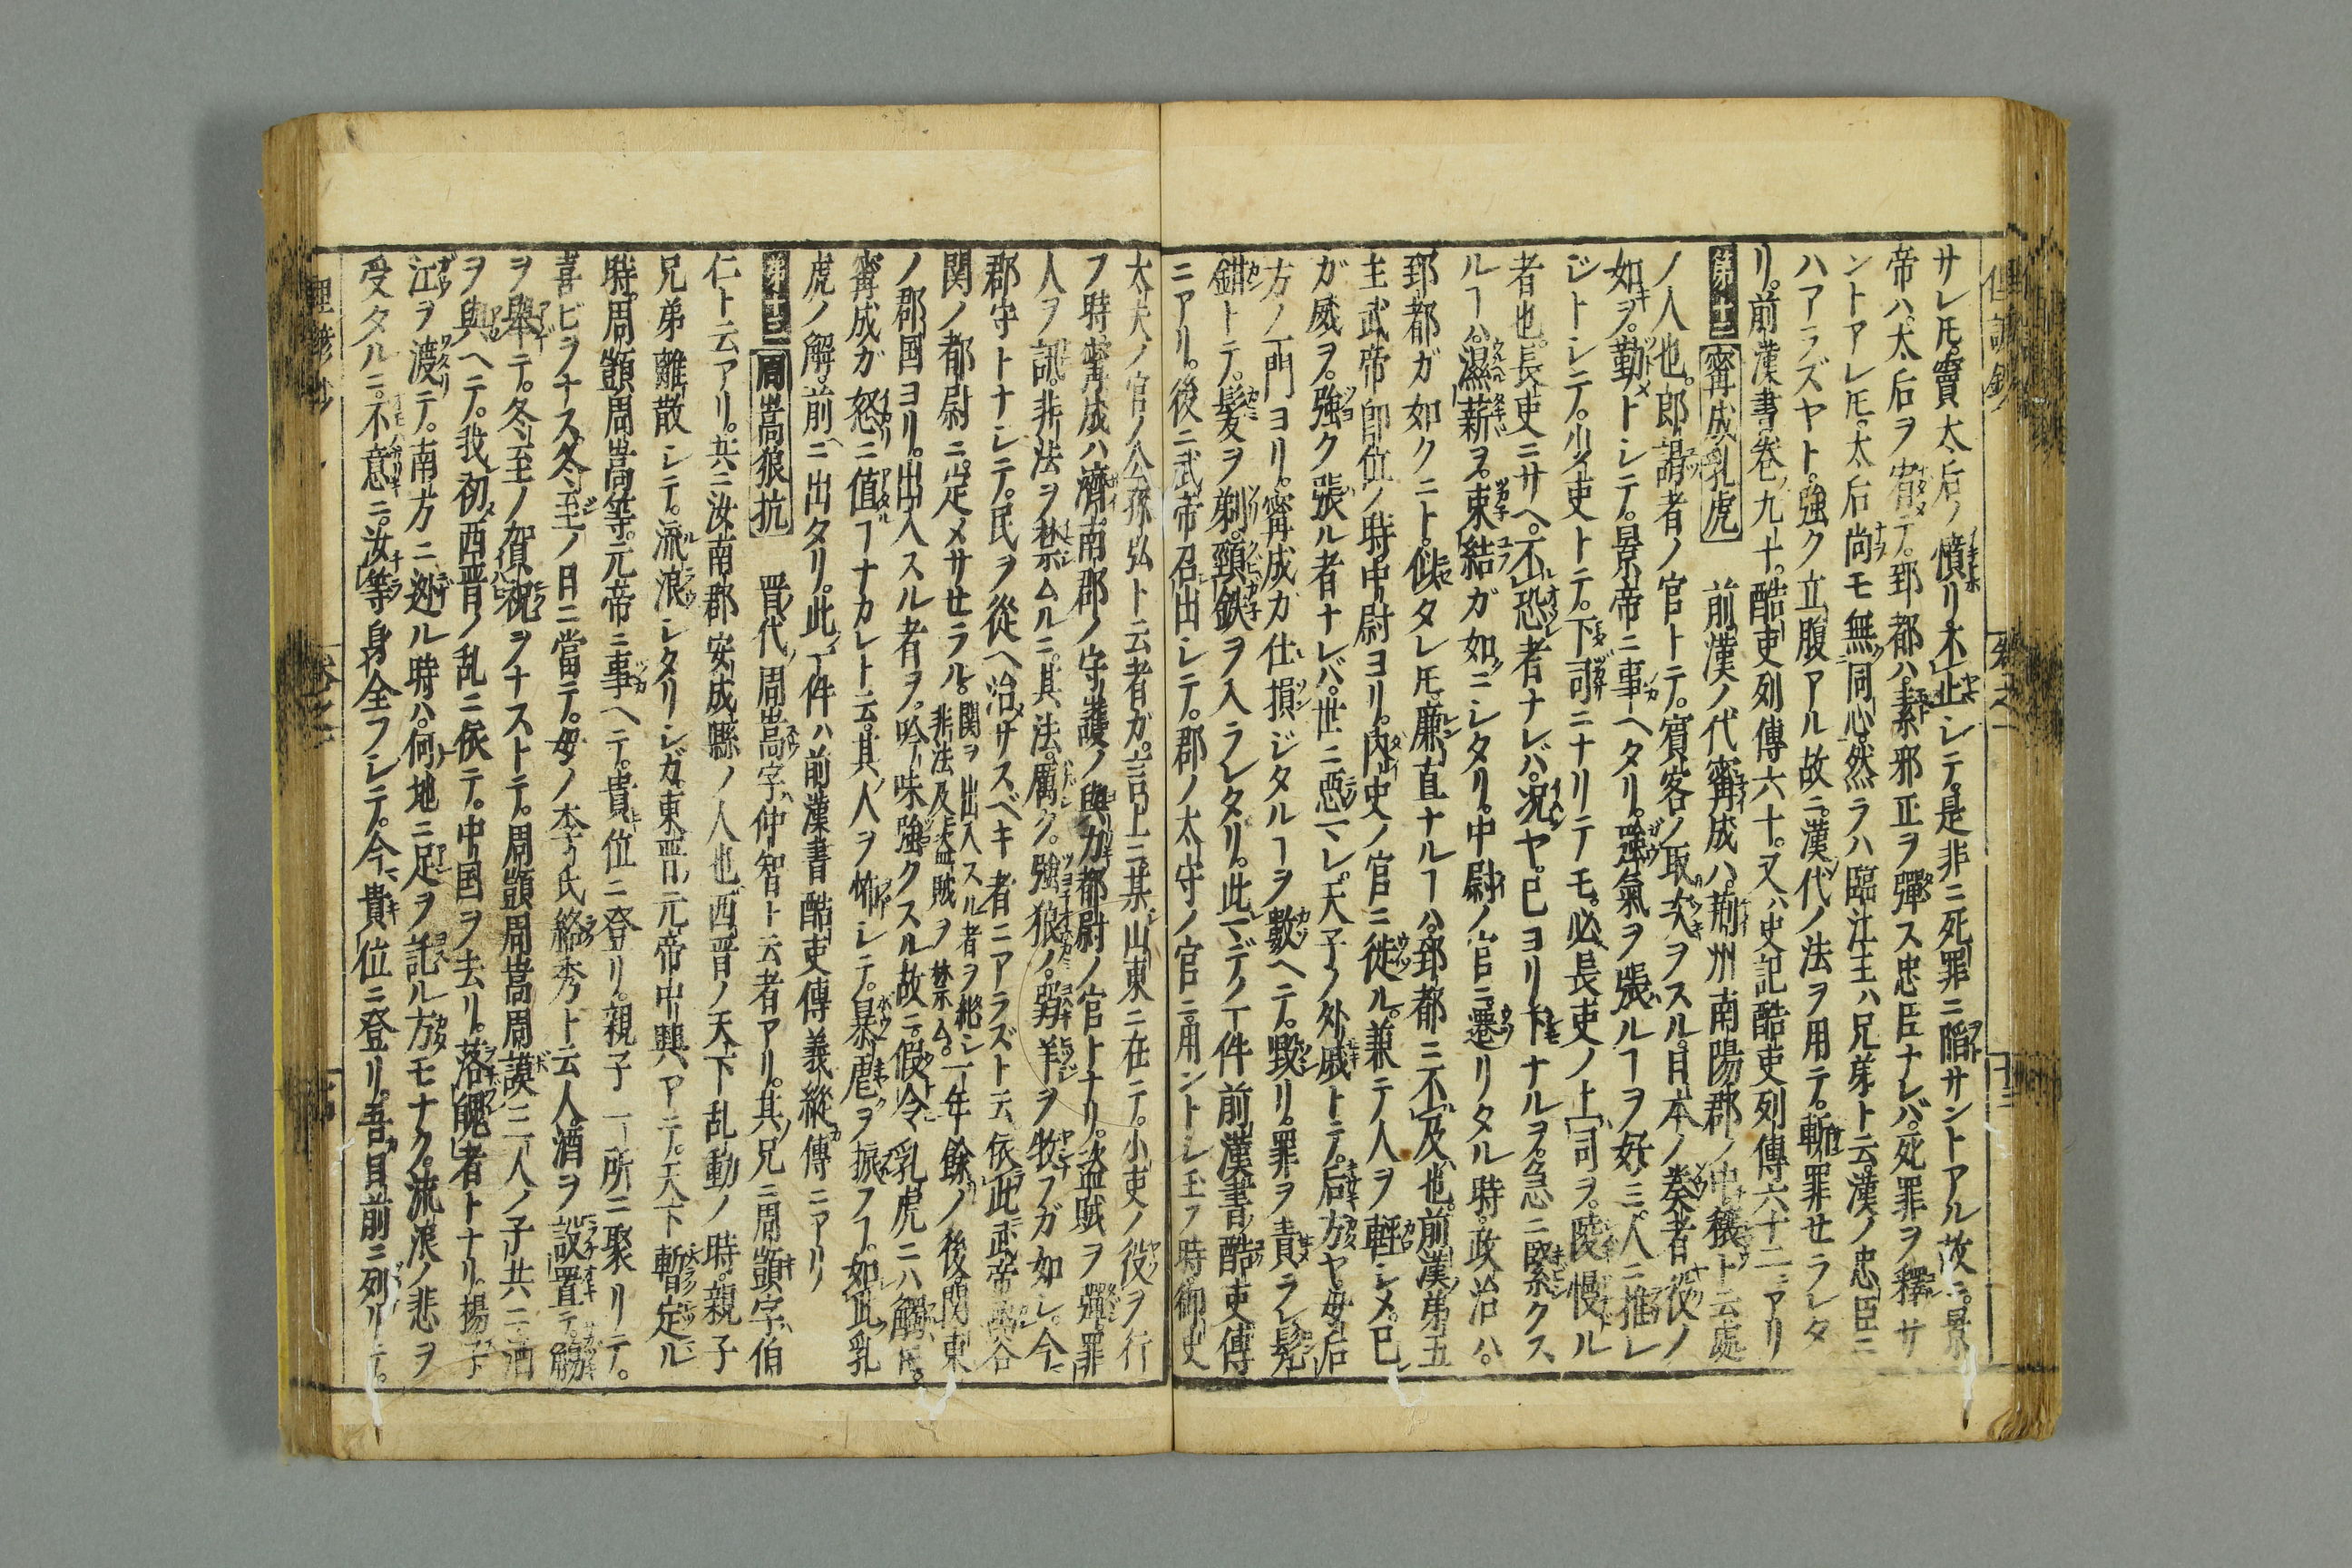 サレ𪜈。竇太后ノ憤リ不止シテ。是非ニ死罪ニ陷サントアル故ニ。景
帝ハ。太后ヲ宥テ。郅都ハ。素邪正ヲ彈ス忠臣ナレバ。死罪ヲ釋サ
ントアレ𪜈。太后尚モ無同心。然ラハ臨江王ハ兄弟ト云。漢ノ忠臣ニ
ハアラズヤト。強ク立腹アル故ニ。漢代ノ法ヲ用テ。斬罪セラレタ
リ。前漢書卷九十。酷吏列傳六十。又ハ史記酷吏列傳六十二ニアリ
第十二 甯成乳虎 前漢ノ代甯成ハ。荊州南陽郡ノ中穰ト云處
ノ人也。郎謁者ノ官トテ。賓客ノ取次ヲスル。日本ノ奏者役ノ
如ヲ。勤トシテ。景帝ニ事ヘタリ。強氣ヲ張ルヿヲ好ミ。人ニ推レ
ジトシテ。少吏トテ。下司ニナリテモ。必長吏ノ上司ヲ。陵慢ル
者也。長吏ニサヘ。不恐者ナレバ。況ヤ。已ヨリ下ナルヲ。急ニ緊クス
ルヿハ。濕薪ヲ。束結ガ如ニシタリ。中尉ノ官ニ遷リタル時。政治ハ。
郅都ガ如クニト。似タレ𪜈。廉直ナルヿハ。郅都ニ不及也。前漢第五
主武帝即位ノ時。中尉ヨリ。內史ノ官ニ徙ル。兼テ人ヲ輕シメ。已
ガ威ヲ。強ク張ル者ナレバ。世ニ惡マレ。天子ノ外戚トテ。后方ヤ。母后
方ノ一門ヨリ。甯成ガ仕損ジタルヿヲ數ヘテ。毀リ。罪ヲ責ラレ髡
鉗トテ。髮ヲ剃。頸鉄ヲ入ラレタリ。此マデノ件前漢書酷吏傳
ニアリ。後ニ武帝召出シテ。郡ノ太守ノ官ニ用ントシ玉フ時。御史
大夫ノ官ノ公孫弘ト云者ガ。言上ニ某山東ニ在テ。小吏ノ役ヲ行
フ時。甯成ハ濟南郡ノ守護ノ與力都尉ノ官トナリ。盜賊ヲ彈罪
人ヲ訊。非法ヲ禁ムルニ。其法。厲ク。強狼ノ。羣羊ヲ牧フガ如シ。今
郡守トナシテ。民ヲ從ヘ治サスベキ者ニアラズト云。依此武帝函谷
関ノ都尉ニ。定メサセラル。関ヲ出入スル者ヲ絶シ非法及盗賊ヲ禁ム。一年餘ノ後関東
ノ郡国ヨリ。出入スル者ヲ。吟味強クスル故ニ。假令乳虎ニハ觸𪜈。
甯成ガ怒ニ值ヿナカレト云。其人ヲ怖シテ。暴虐ヲ振フヿ。如此乳
虎ノ解。前ニ出タリ。此件ハ前漢書酷吏傳義縱傳ニアリ
第十三 周嵩狼抗 晋代周嵩字仲智ト云者アリ。其兄ニ周顗字伯
仁ト云アリ。共ニ汝南郡安成縣ノ人也。西晋ノ天下乱動ノ時。親子
兄弟離散シテ。流浪シタリシガ。東晋元帝中興アテ。天下暫定ル
時。周顗周嵩等。元帝ニ事ヘテ。貴位ニ登リ。親子一所ニ聚リテ。
喜ビヲナス。冬至ノ日ニ當テ。母ノ李氏絡秀ト云人。酒ヲ設置テ。觴
ヲ舉テ。冬至ノ賀祝ヲナストテ。周顗周嵩周謨三人ノ子共ニ。酒
ヲ與ヘテ。我初西晋ノ乱ニ依テ。中国ヲ去リ。落魄者トナリ。揚子
江ヲ渡テ。南方ニ迯ル時ハ。何地ニ足ヲ託ル方モナク。流浪ノ悲ヲ
受タルニ。不意ニ。汝等身全フシテ。今貴位ニ登リ。吾目前ニ列リテ。